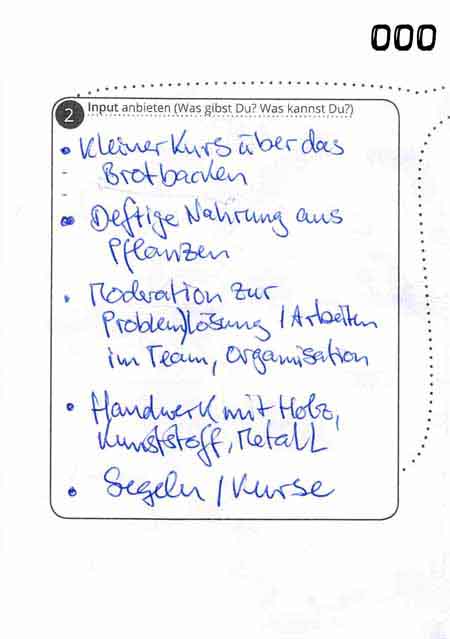 000
2 Input anbieten (Was gibst Du? Was kannst Du?)
• Kleiner Kurs über das
- Brotbacken
-
• Deftige Nahrung aus
Pflanzen
• Moderation zur
Problemlösung / Arbeiten
im Team, Organisation
• Handwerk mit Holz,
Kunststoff, Metall
• Segeln / Kurse